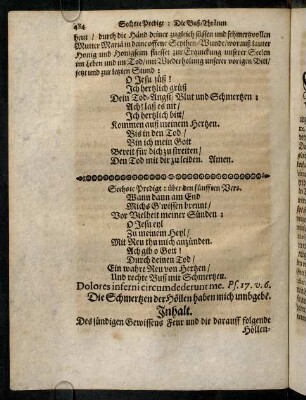 484 Sechste Predigt: Die Buß/Ubelum
heut / durch die Händ deiner zugleich süssen und schmertzvollen
Mutter Mariä in deine offene Seythen/Wunde/worauß lauter
Honig und Honigseim fliesset zur Erquickung unserer Seelen
im Leben und im Tod/mit Wiederholung unserer vorigen Bitt/
jetzt und zur letzten Stund:
O Jesu süß!
Ich hertzlich grüß
Dein Tod-Angst/Blut und Schmertzen:
Ach! laß es nit/
Ich hertzlich bitt/
Kommen auß meinem Hertzen.
Bis in den Tod/
Bin ich mein Gott
Bereit für dich zu streiten/
Den Tod mit dir zu leiden. Amen.
Sechste Predigt: über den fünfften Vers.
Wann dann am End
Michs G'wissen brennt/
Vor Vielheit meiner Sünden:
O Jesu eyl
Zu meinem Heyl/
Mit Reu thu mich anzünden.
Ach gib o Gott!
Durch deinen Tod/
Ein wahre Reu von Hertzen/
Und rechte Buß mit Schmertzen.
Dolores inferni circumdederunt me. Ps. 17. v. 6.
Die Schmertzen der Höllen haben mich umbgebē.
Inhalt.
Des sündigen Gewissens Feur und die darauff folgende
Höllen-